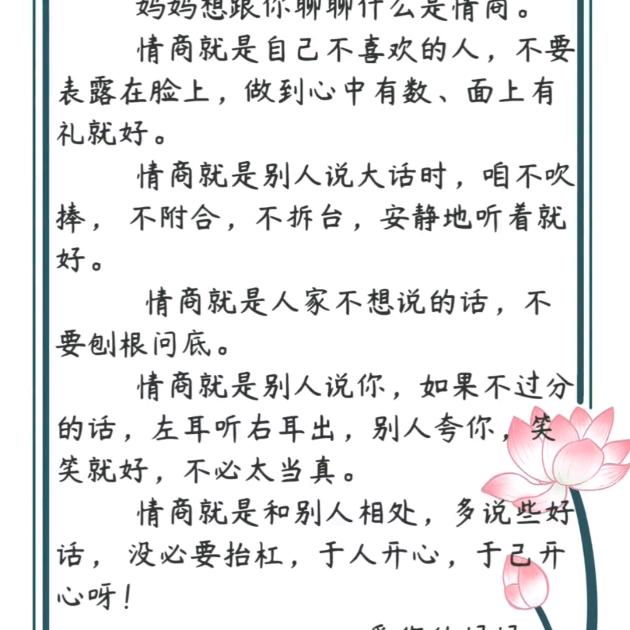 妈妈想跟你聊聊什么是情商。
情商就是自己不喜欢的人，不要
表露在脸上，做到心中有数、面上有
礼就好。
情商就是别人说大话时，咱不吹
捧， 不附合，不拆台，安静地听着就
好。
情商就是人家不想说的话，不
要刨根问底。
情商就是别人说你，如果不过分
的话，左耳听右耳出，别人夸你，笑
笑就好，不必太当真。
情商就是和别人相处，多说些好
话， 没必要抬杠，于人开心，于己开
心呀！